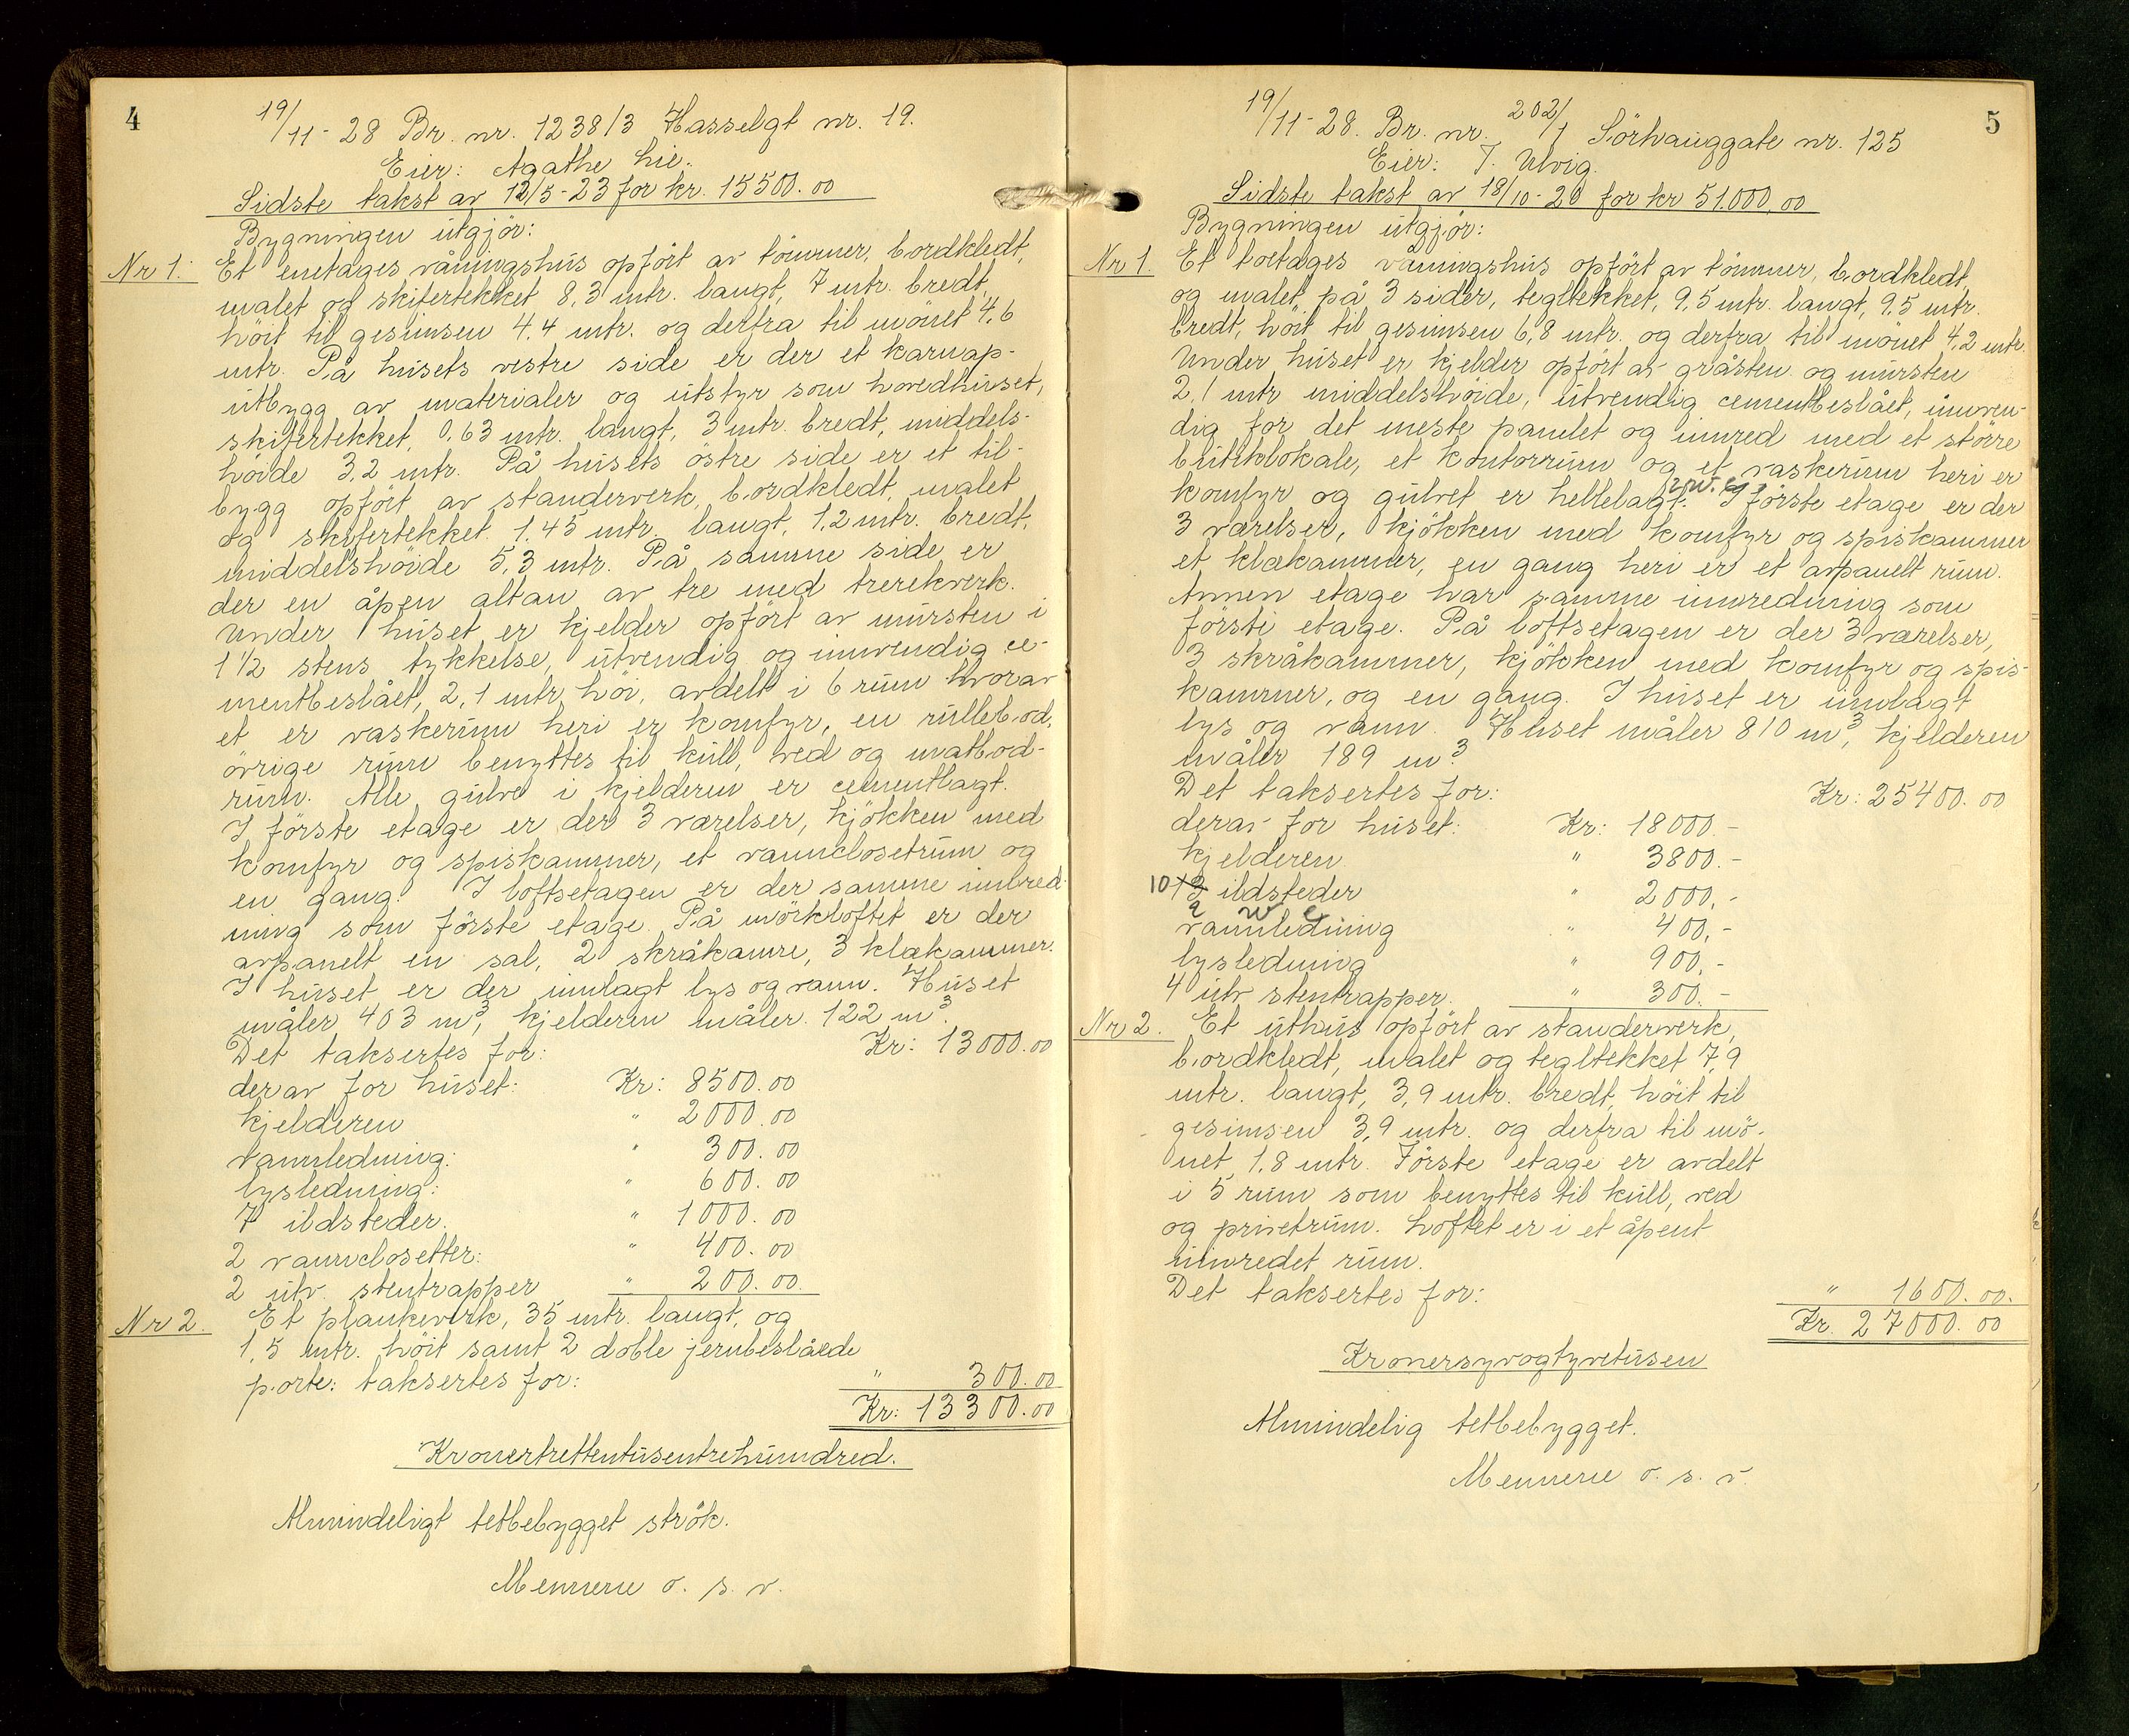 4
19/11-28 Br. nr. 1238/3 Hasselgt nr. 19.
Eier: Agathe Lie.
Sidste takst av 12/5-23 for kr. 15500.00
Bygningen utgjör:
Nr 1. Et enetages våningshus opfört av tömmer, bordkledt,
malet og skifertekket 8,3 mtr. langt, 7 mtr. bredt,
höit til gesimsen 4,4 mtr. og derfra til mönet 4,6
mtr. På husets vestre side er der et karnap-
utbygg av materialer og utstyr som hovedhuset,
skifertekket, 0,63 mtr. langt, 3 mtr. bredt, middels-
höide 3,2 mtr. På husets östre side er et til-
bygg opfört av standerverk, bordkledt, malet
og skifertekket 1,45 mtr. langt, 1,2 mtr. bredt,
middelshöide 5,3 mtr. På samme side er
der en åpen altan av tre med trerekverk.
Under huset er kjelder opfört av mursten i
1 1/2 stens tykkelse, utvendig og innvendig ce-
mentbeslået, 2,1 mtr. höi, avdelt i 6 rum hvorav
et er vaskerum heri er komfyr, en rullebod,
övrige rum benyttes til kull, ved og matbod-
rum. Alle gulve i kjelderen er cementlagt.
I förste etage er der 3 værelser, kjökken med
komfyr og spiskammer, et vannclosetrum og
en gang. I loftsetagen er der samme innred-
ning som förste etage. På mörkloftet er der
avpanelt en sal, 2 skråkamre, 3 klækammer.
I huset er der innlagt lys og vann. Huset
måler 403 m³, kjelderen måler 122 m³.
Det taksertes for: Kr: 13000.00
derav for huset: Kr: 8500.00
kjelderen " 2000.00
vannledning: " 300.00
lysledning: " 600.00
7 ildsteder. " 1000.00
2 vannclosetter: " 400.00
2 utv. stentrapper " 200.00.
Nr 2. Et plankeverk, 35 mtr. langt, og
1,5 mtr. höit samt 2 doble jernbeslåede
porte: taksertes for: " 300.00
Kr: 13300.00
Kronertrettentusentrehundred.
Almindeligt tetbebygget strök.
Mennene o. s. v.
5
19/11-28. Br. nr. 202/1 Sörhauggate nr. 125
Eier: T. Ulvig.
Sidste takst av 18/10-20 for kr 51.000,00
Bygningen utgjör:
Nr 1. Et toetages våningshus opfört av tömmer, bordkledt,
og malet på 3 sider, tegltekket, 9,5 mtr. langt, 9,5 mtr.
bredt, höit til gesimsen 6,8 mtr. og derfra til mönet 4,2 mtr.
Under huset er kjelder opfört av gråsten og mursten
2,1 mtr middelshöide, utvendig cementbeslået, innven-
dig for det meste panelet og innred med et större
butiklokale, et kontorrum og et vaskerum heri er
komfyr og gulvet er hellelagt. I förste etage er der
3 værelser, kjökken med komfyr og spiskammer
et klækammer, en gang heri er et avpanelt rum.
Annen etage har samme innredning som
förste etage. På loftsetagen er der 3 værelser,
3 skråkammer, kjökken med komfyr og spis-
kammer, og en gang. I huset er innlagt
lys og vann. Huset måler 810 m³, kjelderen
måler 189 m³
Det taksertes for: Kr: 25400.00
derav for huset: Kr: 18000.-
kjelderen " 3800.-
10 ildsteder " 2000,-
vannledning " 400,-
lysledning " 900,-
4 utv stentrapper. " 300.-
Nr 2. Et uthus opfört av standerverk,
bordkledt, malet og tegltekket 7,9
mtr. langt, 3,9 mtr. bredt, höit til
gesimsen 3,9 mtr. og derfra til mö-
net 1,8 mtr. Förste etage er avdelt
i 5 rum som benyttes til kull, ved
og privetrum. Loftet er i et åpent
uinredet rum.
Det taksertes for: " 1600.00.
Kr. 27000.00
Kronersyvogtyvetusen
Almindelig tetbebygget.
Mennene o. s. v.